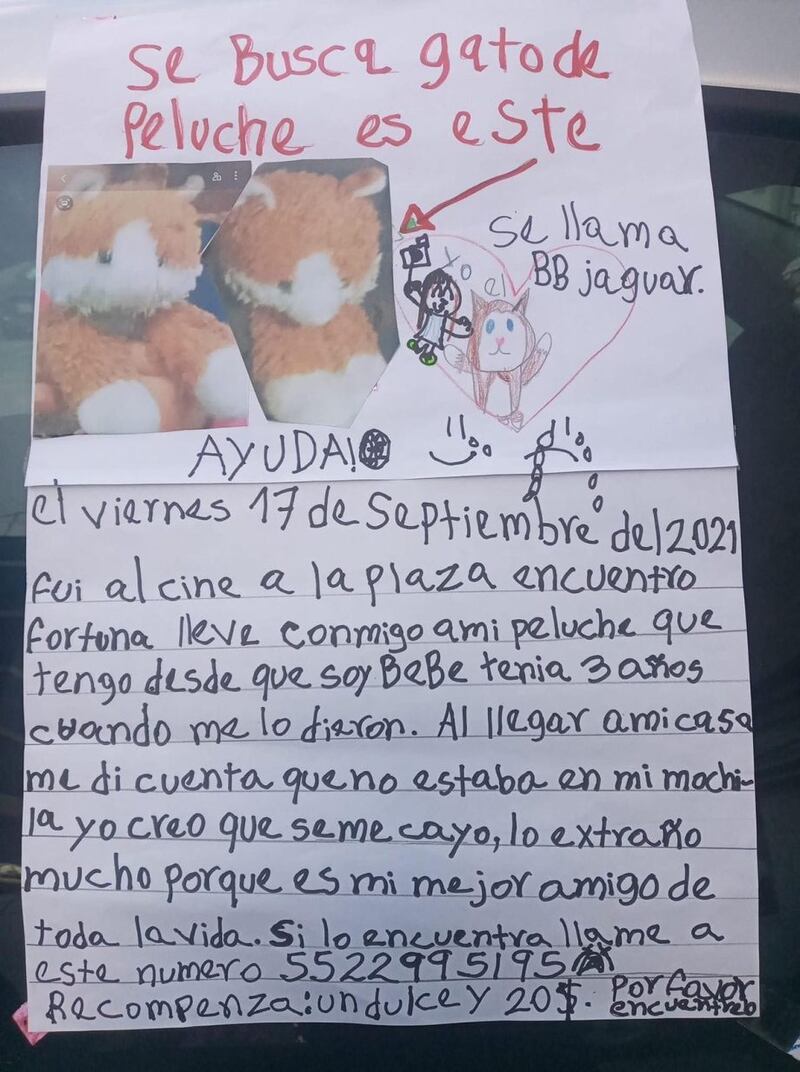 Se Busca gato de
Peluche es este
Se llama
BB jaguar.
yo el
AYUDA!
el viernes 17 de Septiembre del 2021
fui al cine a la plaza encuentro
fortuna lleve conmigo a mi peluche que
tengo desde que soy BeBe tenia 3 años
cuando me lo dieron. Al llegar a mi casa
me di cuenta que no estaba en mi mochi-
la yo creo que se me cayo, lo extraño
mucho porque es mi mejor amigo de
toda la vida. Si lo encuentra llame a
este numero 5522995195
Recompenza: un dulce y 20$. Por favor
encuentrenlo